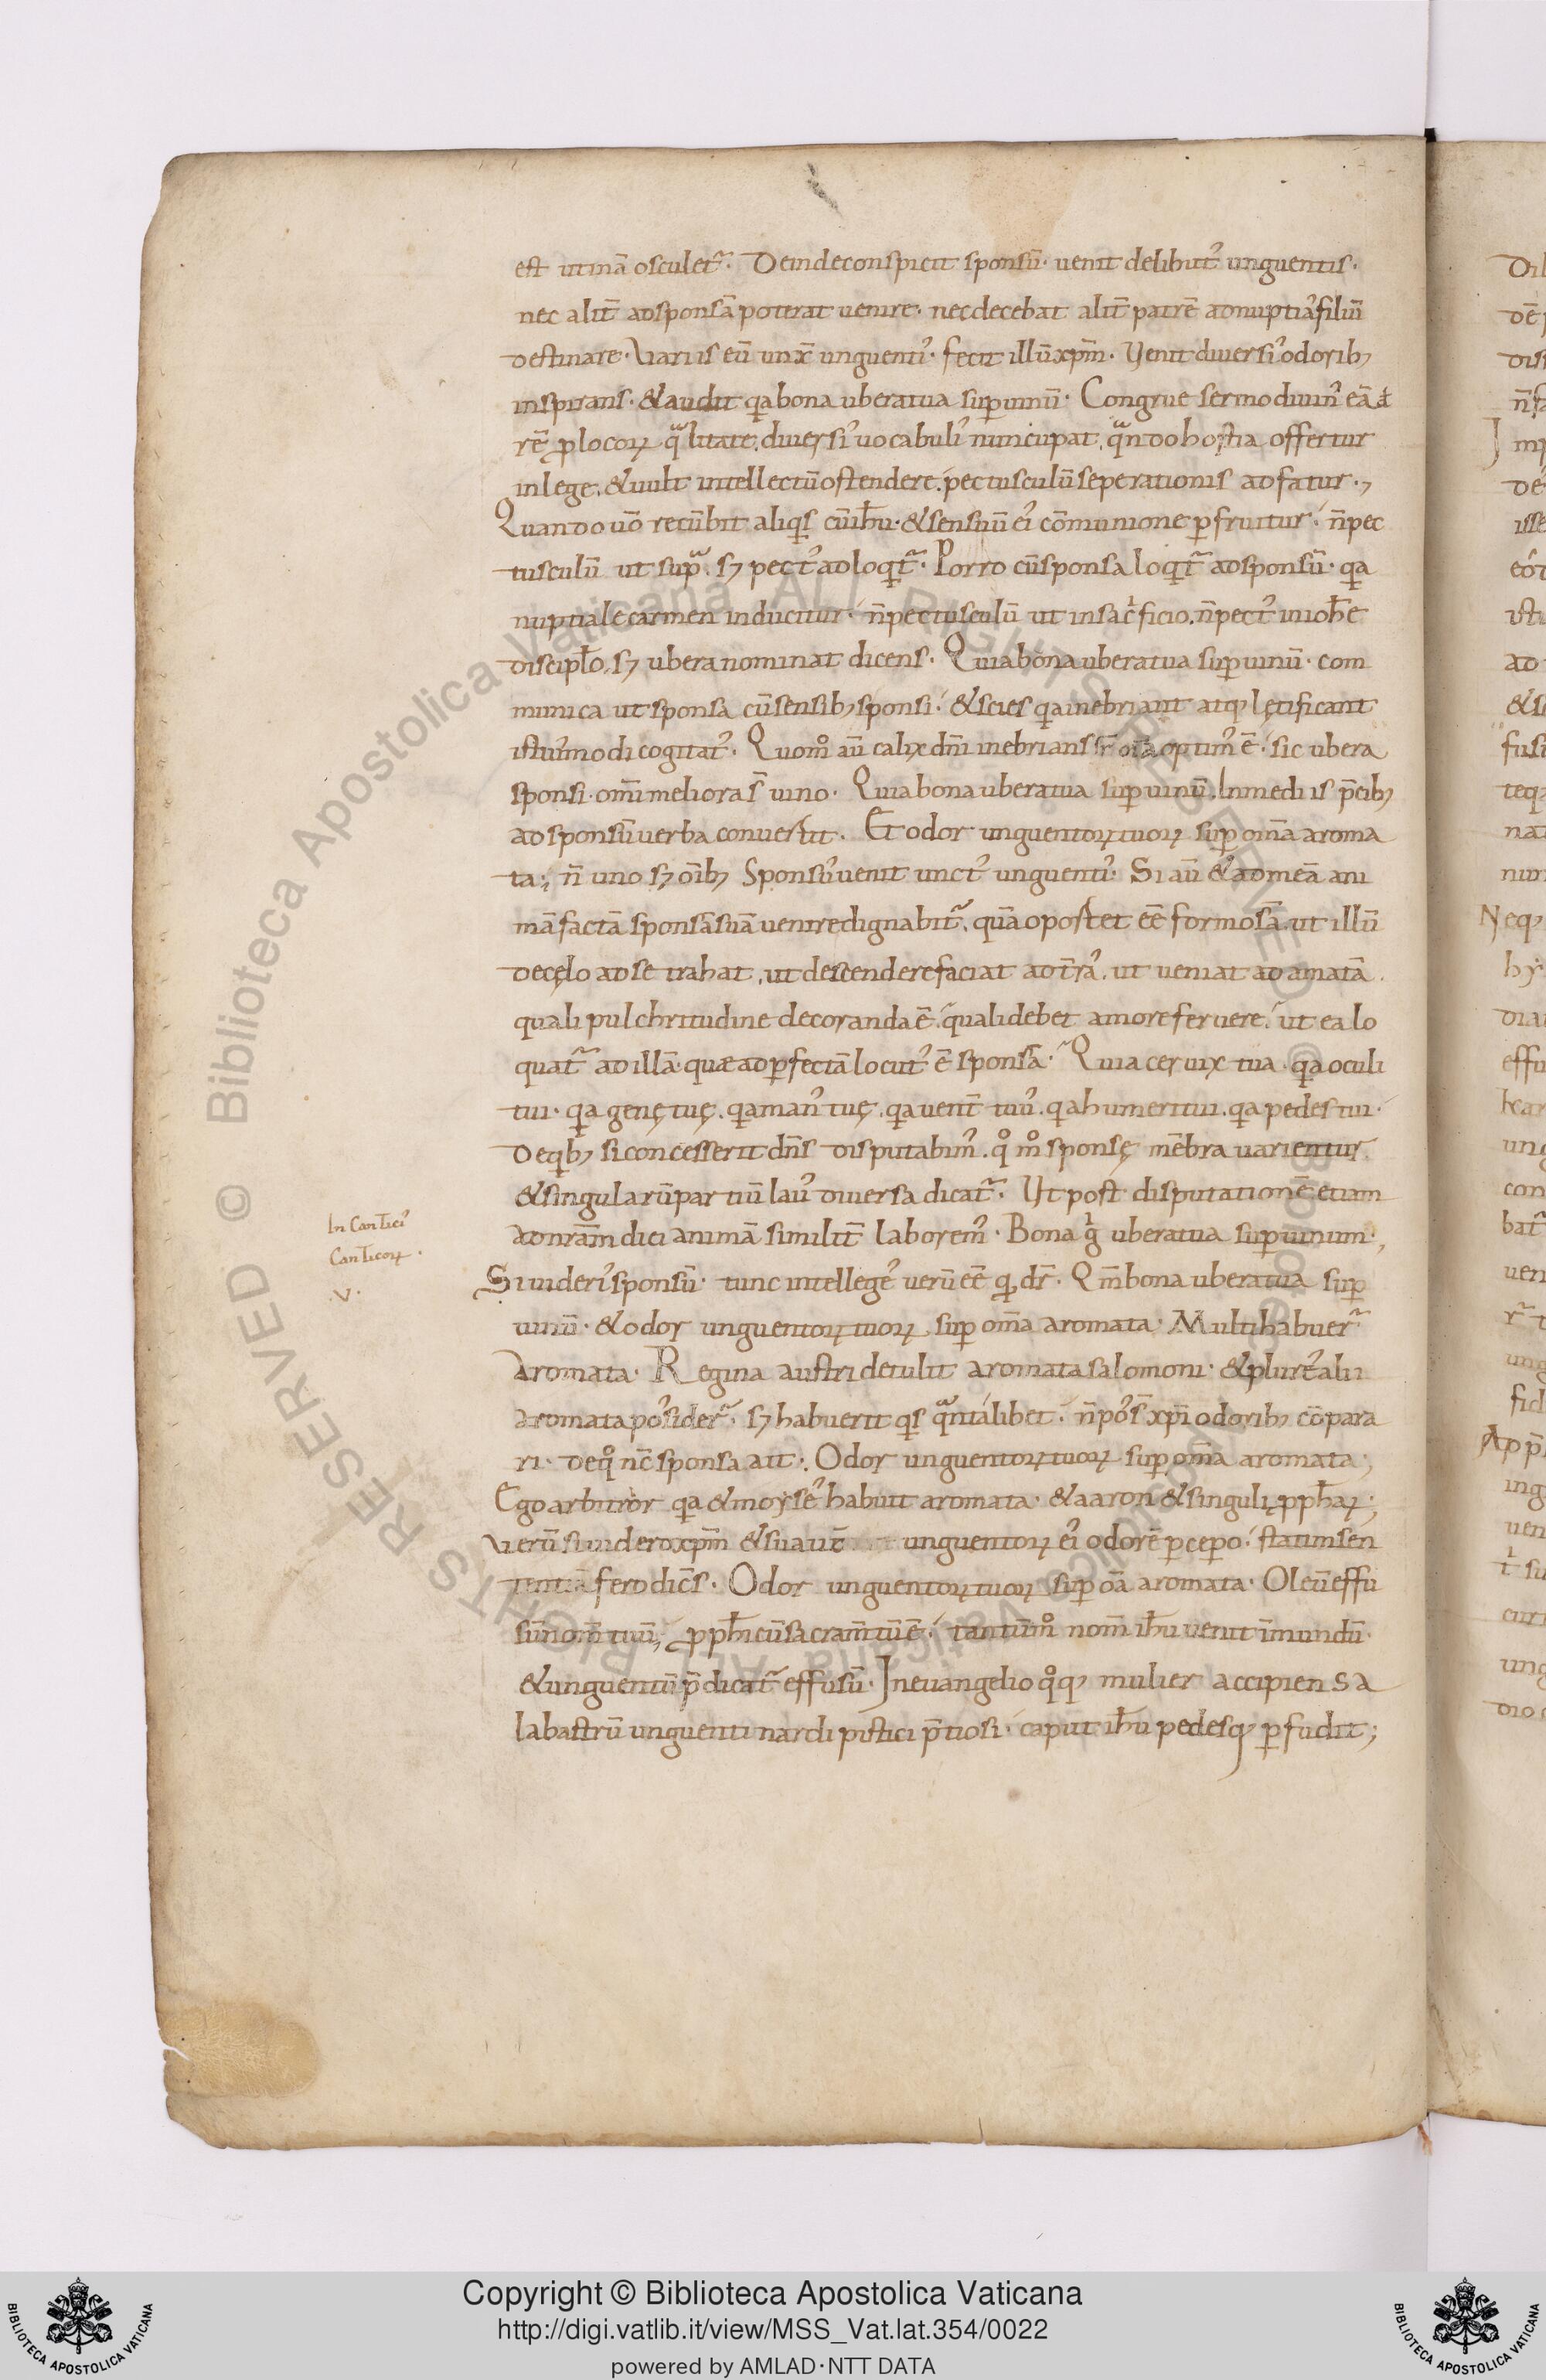 est ut inā osculet᷑. Deinde conspicit sponsū. uenit delibut᷒ unguentis.
nec alit̄ ad sponsā poterat uenire. nec decebat alit̄ patrē ad nuptia᷒ filiū
destinare. Variis eū unx̄ unguenti᷒. fecit illū xp̄m. Venit diuersi᷒ odorib;
inspirans. & audit qa bona ubera tua sup uinū. Congrue sermo diuin᷒ eā
rē ꝓ locoꝝ qͣlitate. diuersi᷒ uocabuli᷒ nuncupat. qͣndo hostia offertur
in lege. & uult intellectū ostendere. pectusculū seperationis adfatur.
Quando uō recūbit aliqs cū ihu. & sensuū ei᷒ cōmunione ꝑfruitur. n̄ pec
tusculū ut supͣ. sꝫ pect᷒ adloqt᷑. Porro cū sponsa loqt᷑ ad sponsū. qa
nuptiale carmen inducitur. n̄ pectusculū ut in sacͥficio. n̄ pect᷒ in ioh̄e
discipl̄o. sꝫ ubera nominat dicens. Quia bona ubera tua sup uinū. com
munica ut sponsa cū sensib; sponsi. & scies qa inebriant atq; lętificant
istiu᷒modi cogitat᷒. Quom̊ aū calix dn̄i inebrians optim᷒ ē. sic ubera
sponsi. om̄i meliora s̄ uino. Quia bona ubera tua sup uinū. In mediis p̄cib;
ad sponsū uerba conuertit. Et odor unguentoꝝ tuoꝝ sup om̄a aroma
ta; n̄ uno sꝫ oīb; Sponsu᷒ uenit unct᷒ unguenti᷒. Si aū & ad meā ani
mā factā sponsā suā uenire dignabit᷑. quā oportet eē formosā. ut illū
de cęlo ad se trahat. ut descendere faciat ad t̄ra᷒. ut ueniat ad amatā.
quali pulchritudine decoranda ē. quali debet amore feruere. ut ea lo
quat᷑ ad illā. quæ ad ꝑfectā locut᷒ ē sponsā. Quia ceruix tua. qa oculi
tui. qa genę tuę. qa man᷒ tuę. qa uent̄ tuu᷒. qa humeri tui. qa pedes tui.
De qb; si concesserit dn̄s disputabim᷒. qͦ mͦ sponsę mēbra uarientur
& singularū partiū lau᷒ diuersa dicat᷑. Vt post disputationē etiam
ad nr̄am dici animā similit̄ laborem᷒. Bona gͥ ubera tua sup uinum.
Si uideri᷒ sponsū. tunc intellege᷒ uerū eē qd dr̄. Qm̄ bona ubera tua sup
uinū. & odor unguentoꝝ tuoꝝ sup om̄a aromata. Multi habuer᷑
aromata. Regina austri detulit aromata salomoni. & plure᷒ alii
aromata po᷒sider᷑. sꝫ habuerit qs qͣntalibet. n̄ po᷒s̄ xp̄i odorib; cōpara
ri. de qͦ nc̄ sponsa ait. Odor unguentoꝝ tuoꝝ sup om̄a aromata;
Ego arbitror qa & moyse᷒ habuit aromata. & aaron & singuli ꝓph̄aꝝ;
Verū si uidero xp̄m & suauit̄ unguentoꝝ ei᷒ odorē ꝑcepo. statim sen
tentiā fero dic̄s. Odor unguentoꝝ tuoꝝ sup oā aromata. Oleū effu
sū nom̄ tuū; ꝓph̄icū sacram̄tū ē. tantūmͦ nom̄ ihu uenit ī mundū.
& unguentū p̄dicat᷑ effusū. In euangelio qͦq; mulier accipiens a
labastrū unguenti nardi pistici p̄tiosi. caput ihu pedesq; ꝑfudit;
In Cantici᷒
Canticoꝝ.
.V.
Copyright © Biblioteca Apostolica Vaticana
http://digi.vatlib.it/view/MSS_Vat.lat.354/0022
powered by AMLAD·NTT DATA
BIBLIOTECA APOSTOLICA VATICANA
BIBLIOTECA APOSTOLICA VATICANA